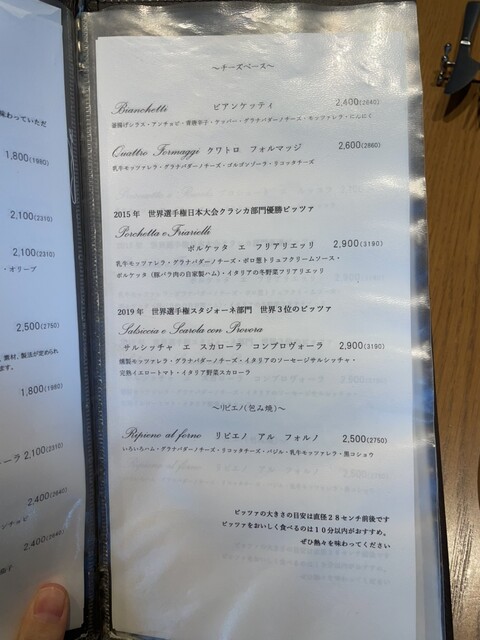 味わっていただ
1,800(1980)
2,100(2310)
2,100(2310)
・オリーブ
2,500(2750)
素材、製法が定められ
ます。
1,800(1980)
ーラ 2,100(2310)
2,400(2640)
ンチョビ
2,400(2640)
～チーズベース～
Bianchetti ビアンケッティ 2,400(2640)
釜揚げシラス・アンチョビ・青唐辛子・ケッパー・グラナパダーノチーズ・モッツァレラ・にんにく
Quattro Formaggi クワトロ フォルマッジ 2,600(2860)
乳牛モッツァレラ・グラナパダーノチーズ・ゴルゴンゾーラ・リコッタチーズ
2015年 世界選手権日本大会クラシカ部門優勝ピッツァ
Porchetta e Friarielli
ポルケッタ エ フリアリエッリ 2,900(3190)
乳牛モッツァレラ・グラナパダーノチーズ・ポロ葱トリュフクリームソース・
ポルケッタ（豚バラ肉の自家製ハム）・イタリアの冬野菜フリアリエッリ
2019年 世界選手権スタジォーネ部門 世界３位のピッツァ
Salsiccia e Scarola con Provora
サルシッチャ エ スカローラ コンプロヴォーラ 2,900(3190)
燻製モッツァレラ・グラナパダーノチーズ・イタリアのソーセージサルシッチャ・
完熟イエロートマト・イタリア野菜スカローラ
～リピエノ(包み焼)～
Ripieno al forno リピエノ アル フォルノ 2,500(2750)
いろいろハム・グラナパダーノチーズ・リコッタチーズ・バジル・乳牛モッツァレラ・黒コショウ
ピッツァの大きさの目安は直径２８センチ前後です
ピッツァをおいしく食べるのは１０分以内がおすすめ。
ぜひ熱々を味わってください